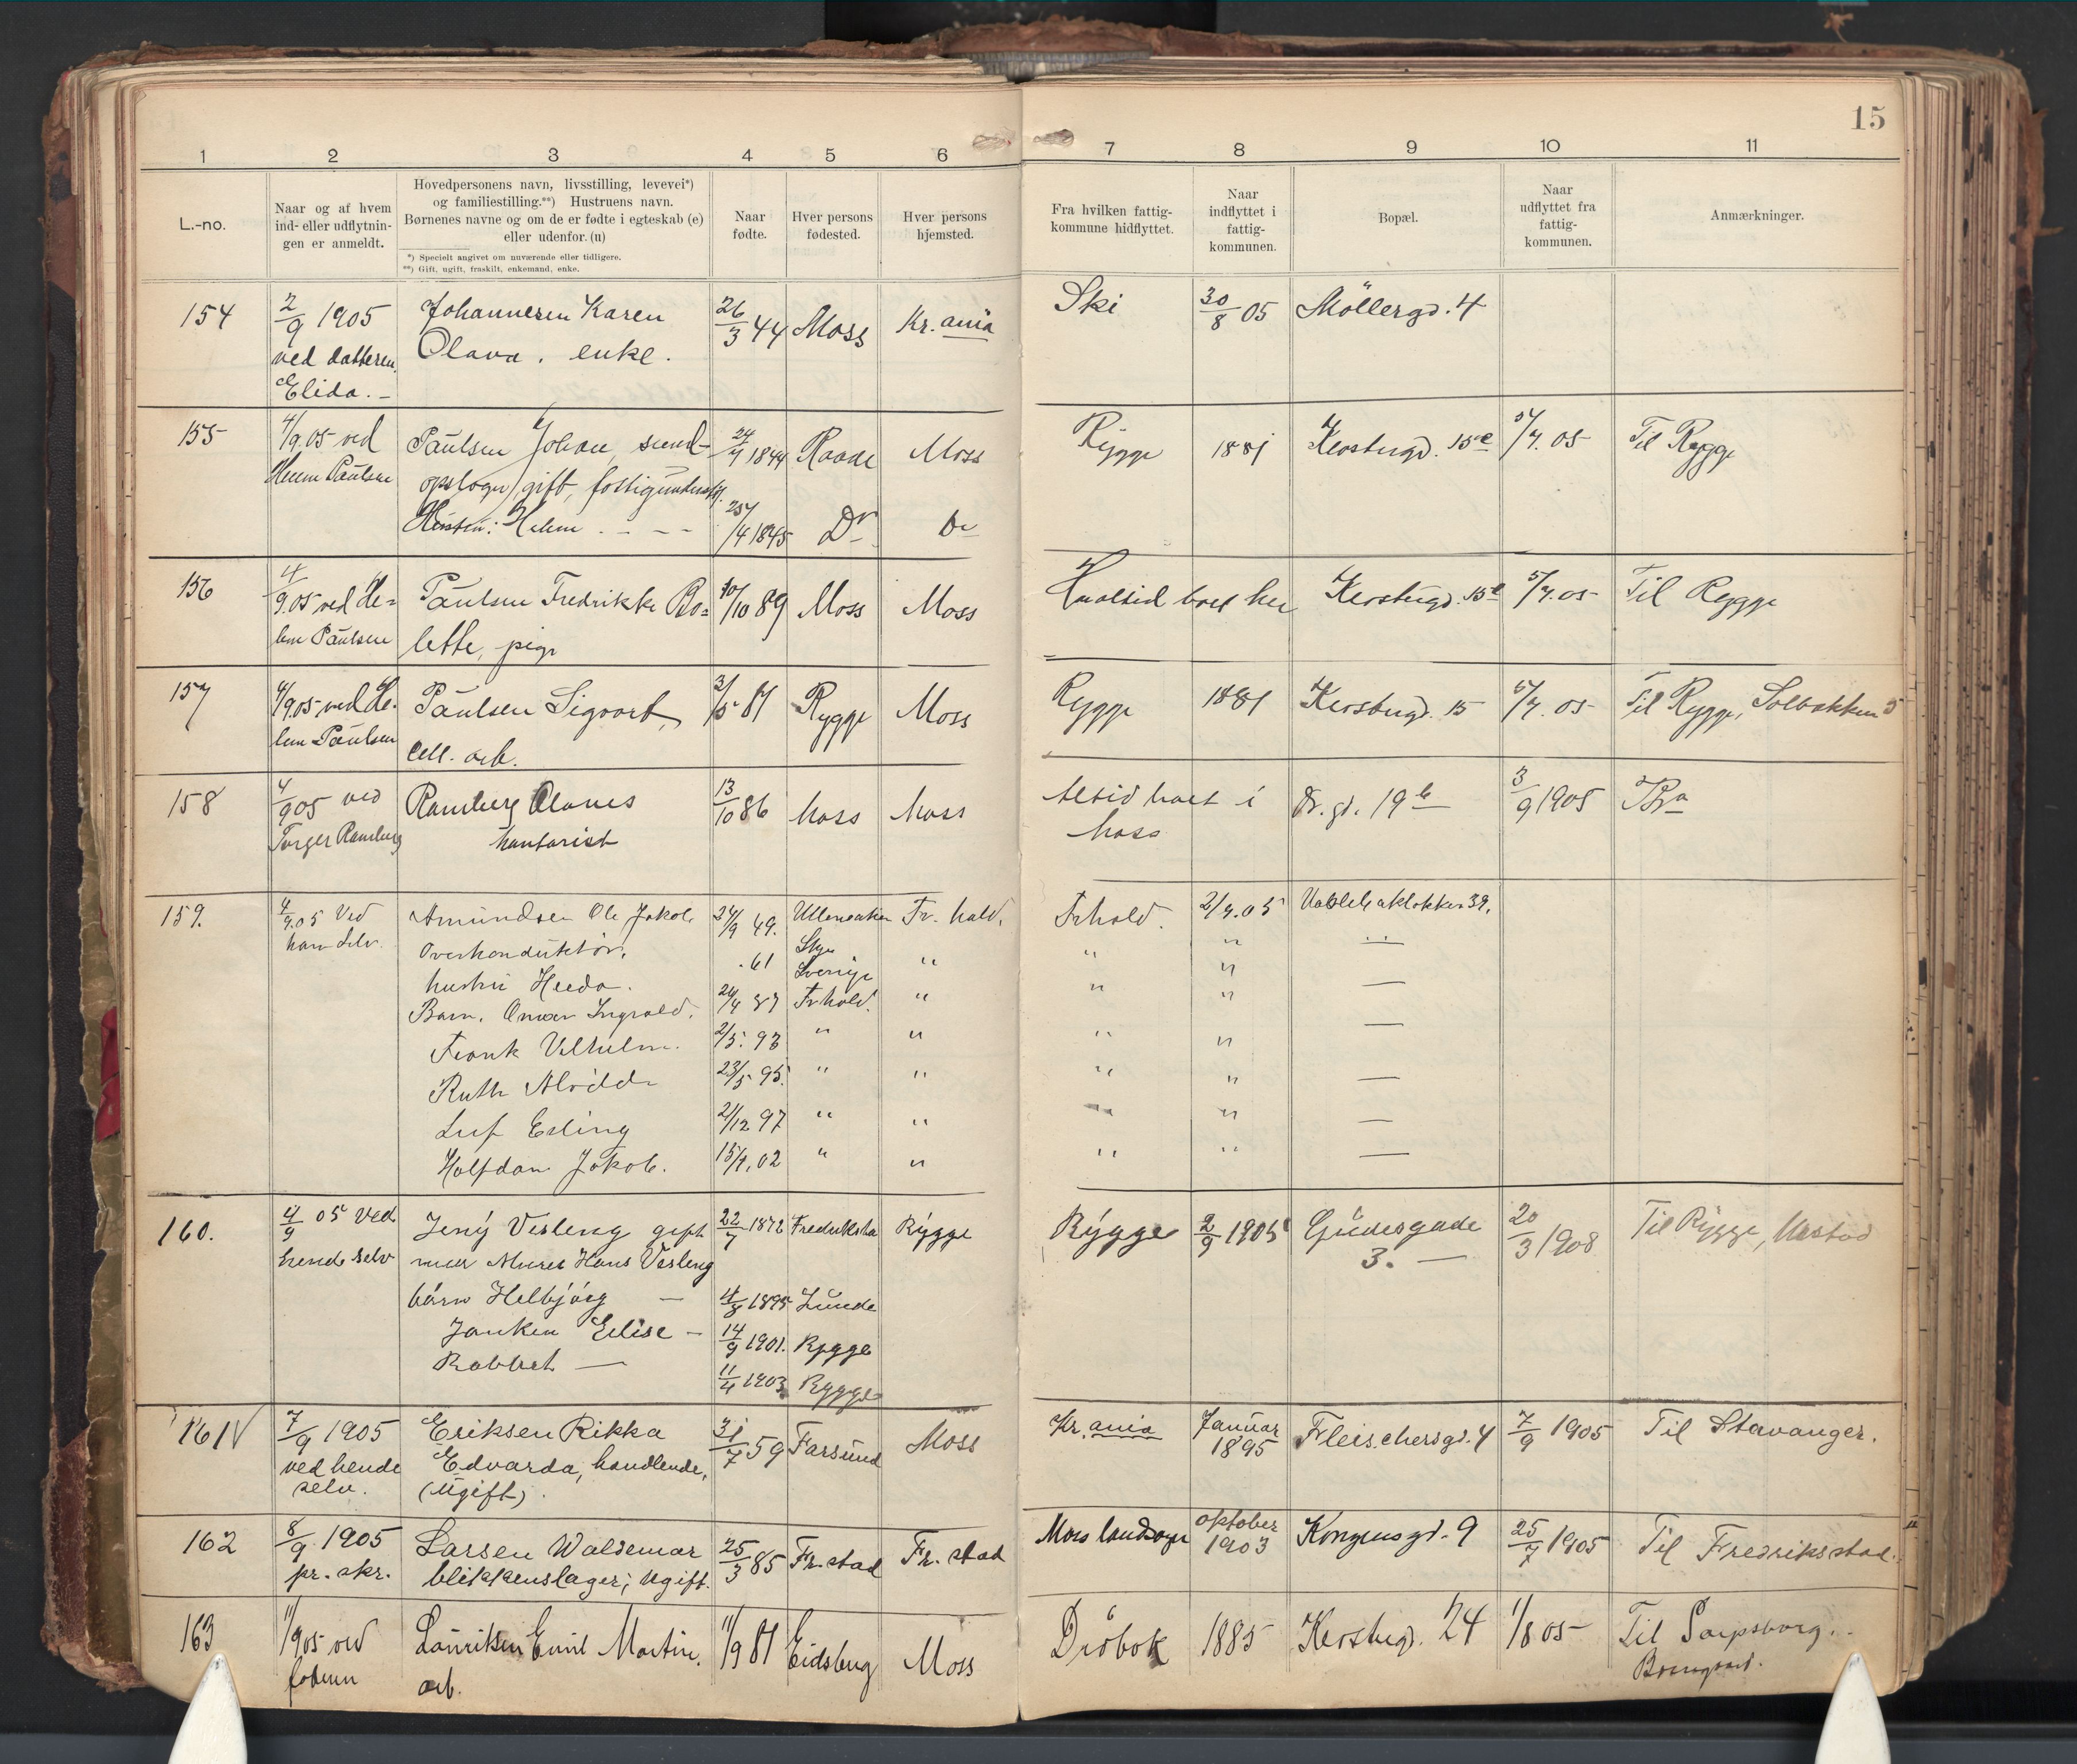 15
1 2 3 4 5 6 7 8 9 10 11
L.-no.
Naar og af hvem
ind- eller udflytnin-
gen er anmeldt.
Hovedpersonens navn, livsstilling, levevei*)
og familiestilling.**) Hustruens navn.
Børnenes navne og om de er fødte i egteskab (e)
eller udenfor. (u)
*) Specielt angivet om nuværende eller tidligere.
**) Gift, ugift, fraskilt, enkemand, enke.
Naar
fødte.
Hver persons
fødested.
Hver persons
hjemsted.
Fra hvilken fattig-
kommune hidflyttet.
Naar
indflyttet i
fattig-
kommunen.
Bopæl.
Naar
udflyttet fra
fattig-
kommunen.
Anmærkninger.
154 2/9 1905 Johannesen Karen 26/3 44 Moss Kr.ania Ski 30/8 05 Möllergd. 4
ved datteren Olava. enke.
Elida. -
155 4/9.05 ved Paulsen Johan, 1844 Raade Moss Rygge 1881 15 05 Til Rygge
Paulsen gift,
25/4 1845 Do Do
156 4/9.05 ved He- Paulsen Fredrikke Bo- 10/10 89 Moss Moss boet her 15 05 Til Rygge
Paulsen lette, pige
157 4/9.05 ved He- Paulsen Sigvart, 3/5 87 Rygge Moss Rygge 1881 15 05 Til Rygge, Solbakken 5
Paulsen Cell. arb.
158 4/9 05 ved Ramberg Olaves 13/10 86 Moss Moss Altid boet i Dr. gd. 19 b 3/9 1905
Torger Ramberg kontorist Moss
159. 4/9.05 Ved Amundsen Ole Jakob 24/9 49. Fr. hald. Frhald. 05 39.
ham Selv. Overkonduktør.
hustru .61 Sverige " " "
Barn. Ingvald. 87 Frhald. " " "
Frank Vilhelm. 2/5. 93 " " " "
Ruth 23/5 95. " " " "
Leif Erling 2/12 97 " " " "
Halfdan Jakob. 02 " " " "
160. 4/9 05 Ved Jeny Vesleng gift 22/7 1872 Fredriksta Rygge Rygge 2/9 1905 Gudesgade 20/3 1908 Til Rygge,
hende selv med Murer Hans Vesleng 3. -
börn Helbjörg - 4/8 1895 Lunde
Elise - 14/9 1901. Rygge
Robbert - 11/4 1903 Rygge
161 7/9 1905 Eriksen Rikka 31/7 59 Farsund Moss Kr.ania Januar 1895 Fleischersgd. 4 7/9 1905 Til Stavanger.
ved hende Edvarda, handlende,
selv. (Ugift).
162 8/9 1905 Larsen Waldemar 25/3 85 Fr.stad Fr.stad Moss landsogn oktober 1903 Kongensgd. 9 25/7 1905 Til Fredriksstad.
pr. skr. blikkenslager; Ugift.
163 11/9 05 ved Lauritsen Emil Martin, 11/9 81 Eidsberg Moss Dröbak 1885 24 1/8 05 Til Sarpsborg.
arb.